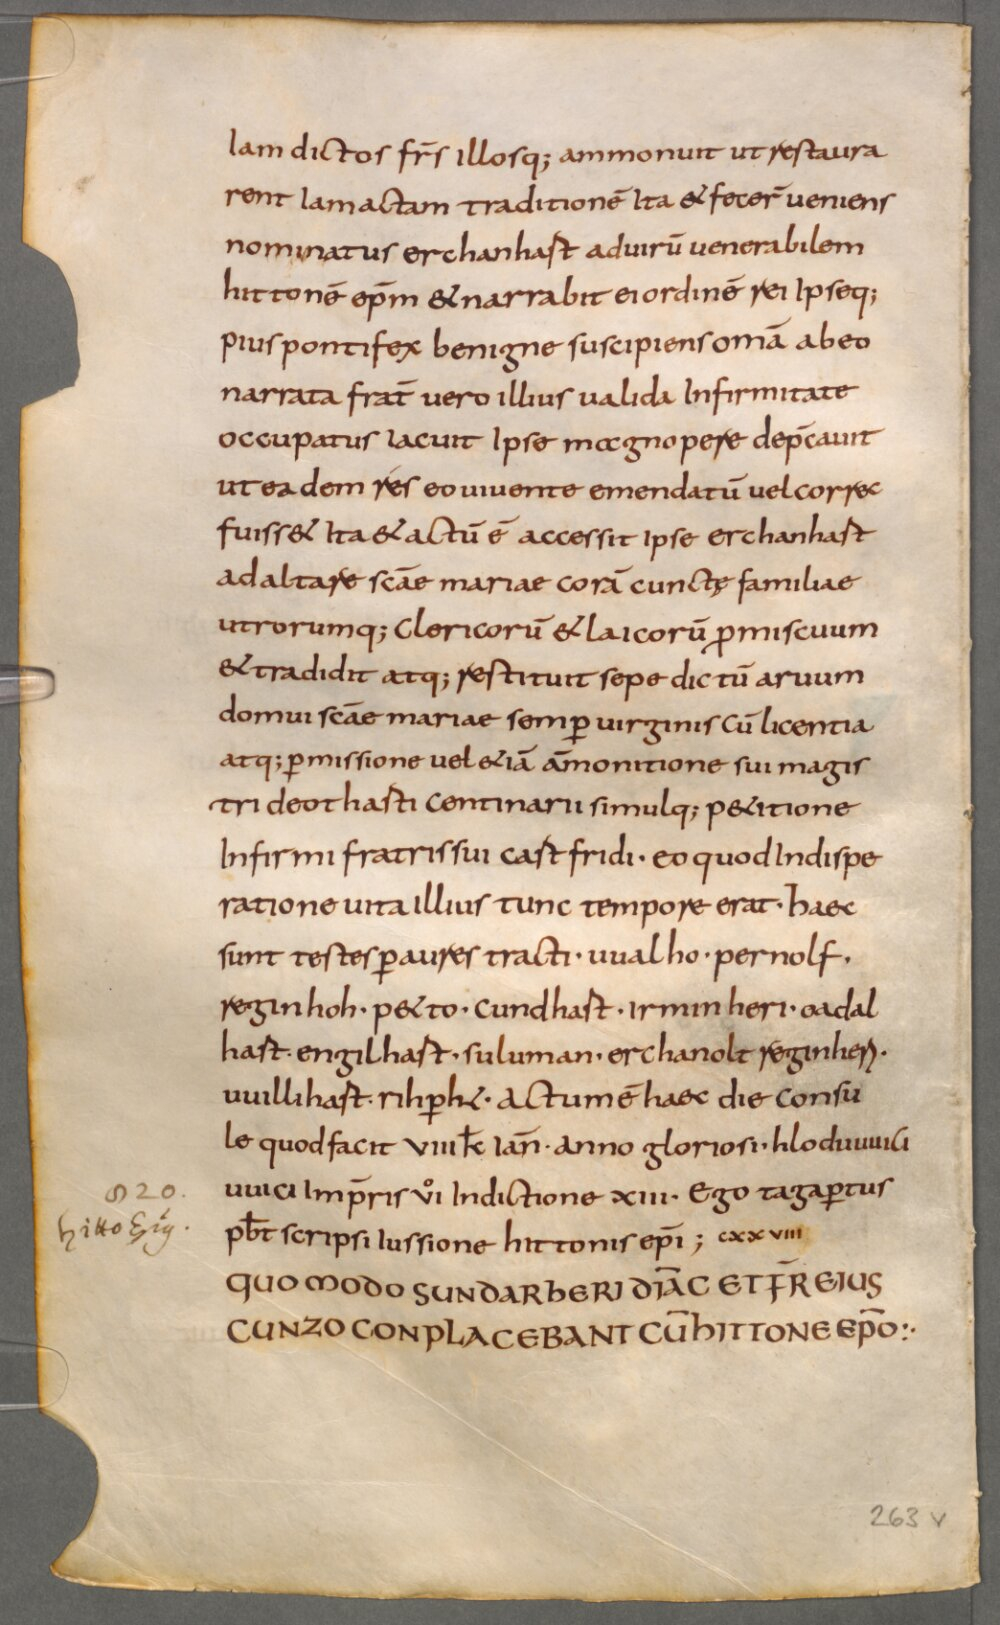 Iam dictos fr̄s illosq; ammonuit ut restaura
rent Iam actam traditionē Ita & fecer̄ ueniens
nominatus erchanhast ad uirū uenerabilem
hittonē ep̄m & narrabit ei ordinē rei Ipseq;
pius pontifex benigne suscipiens om̄a ab eo
narrata frat̄ uero illius ualida Infirmitate
occupatus Iacuit Ipse magnopere dep̄cauit
ut eadem res eo uiuente emendatū uel correc
fuiss& Ita & actū ē accessit Ipse erchanhast
ad altare sc̄ae mariae corā cunctę familiae
utrorumq; Clericorū & laicorū ꝓmiscuum
& tradidit atq; restituit sepe dictū aruum
domui sc̄ae mariae semꝑ uirginis Cū licentia
atq; ꝑmissione uel &iā am̄onitione sui magis
tri deothasti Centinarii simulq; p&itione
Infirmi fratris sui castfridi · eo quod Indispe
ratione uita Illius tunc tempore erat · haec
sunt testes ꝑ aures tracti · uualho · pernolf ·
reginhoh · p&to · Cundhast · Irminheri · oadal
hast · engilhast · suluman · erchanolt reginheri ·
uuillihast · rihꝑht · Actum ē haec die Consu
le quod facit VIII k̄ Ian̄ · Anno gloriosi · hloduuuici
uuici Imp̄ris ui̊ Indictione XIII · Ego tagaꝑtus
pb̄t scripsi Iussione hittonis ep̄i ; CXXVIII
QUOMODO SUNDARHERI DIĀC ET FR̄ EIUS
CUNZO CONPLACEBANT CŪ HITTONE EP̄O :·
820.
hitto Ep̄ig.
263 v